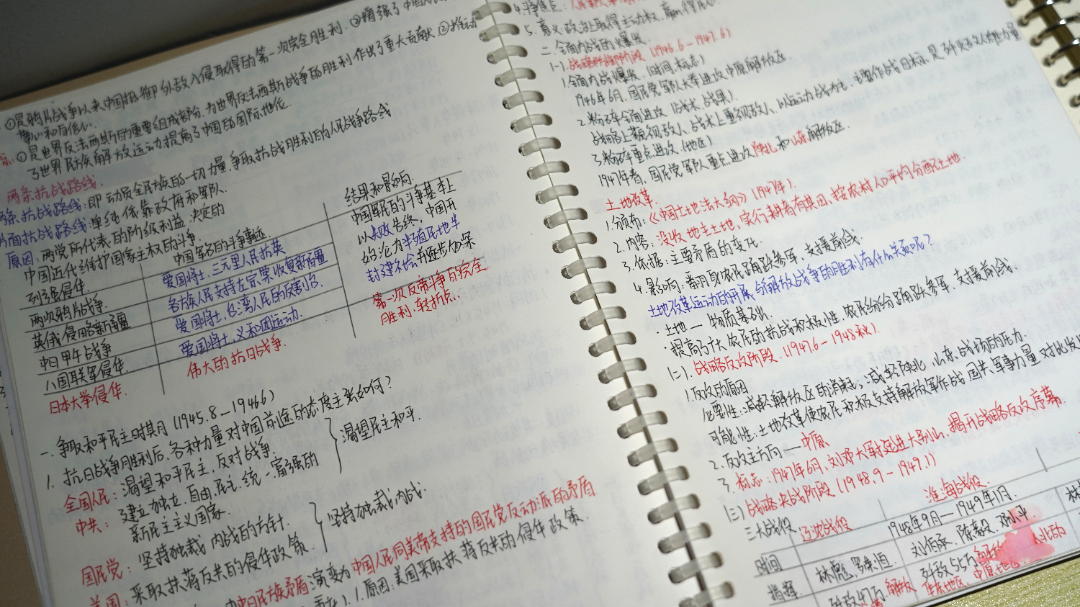 ①是鸦片战争以来中国抵御外敌入侵取得的第一次完全胜利.②增强了中国
自尊心和自信心.
③是世界反法西斯的重要组成部分,为世界反法西斯战争的胜利作出了重大贡献.④推动
了世界民族解放运动提高了中国的国际地位.
两条抗战路线.
抗战路线:即动员全民族的一切力量,争取抗战胜利的人民战争路线
片面抗战路线:单纯依靠政府和军队.
原因:两党所代表的阶级利益决定的
中国近代维护国家主权的斗争.
列强侵华. 中国军民的斗争事迹 结果和影响.
两次鸦片战争. 爱国将士,三元里人民抗英 中国军民的斗争基本上
英俄侵略新疆 各族人民支持左宗棠,收复新疆 以失败告终,中国开
中日甲午战争 爱国将士,台湾人民的反割台. 始沦为半殖民地半
八国联军侵华. 爱国将士,义和团运动. 封建社会并逐步加深
日本大举侵华. 伟大的抗日战争. 第一次反帝斗争的完全
胜利,转折点.
一.争取和平民主时期(1945.8—1946)
1.抗日战争胜利后,各种力量对中国前途的态度主张如何?
全国人民:渴望和平民主,反对战争. 渴望民主和平.
中共:建立独立.自由.民主.统一.富强的
新民主主义国家.
国民党:坚持独裁、内战的方针. 坚持独裁,内战.
美国:采取扶蒋反共的侵华政策.
中日民族矛盾演变为中国人民同美帝支持的国民党反动派的矛盾
1.原因:美国采取扶蒋反共的侵华政策.
5.意义:政治上取得主动权,赢得
二.全面内战的爆发.
(一).战略防御阶段(1946.6—1947.6)
1.全面内战爆发.(时间,标志)
1946年6月,国民党军队大举进攻中原解放区
2.粉碎全面进攻(战术,战果)
战略上藐视敌人,战术上重视敌人,以运动战为主,
3.粉碎重点进攻.(地区)
1947年春,国民党军队重点进攻陕北和山东解放区.
土地改革.
1.颁布:《中国土地法大纲》(1947年)
2.内容:没收地主土地,实行耕者有其田,按农村人口平均分配土地.
3.依据:主要矛盾的变化.
4.影响:翻身农民踊跃参军,支援前线.
土地改革运动的开展,给解放战争的胜利有什么关系呢?
·土地—物质基础.
·提高了广大农民的抗战积极性.农民纷纷踊跃参军,支援前线.
(二).战略反攻阶段.(1947.6—1948秋)
1.反攻的原因
必要性:减轻解放区的消耗,减轻陕北,山东,战场的压力.
可能性:土地改革使农民积极支持解放军作战
2.反攻主方向—中原
3.标志:1947年6月,刘邓大军挺进大别山,揭开战略反攻序幕.
(三)战略决战阶段(1948.9—1949.1)
三大战役 辽沈战役 淮海战役.
时间 1948年9月—1949年1月.
指挥 林彪,罗荣桓 刘伯承,陈毅,邓小平
歼敌47万 歼敌55万